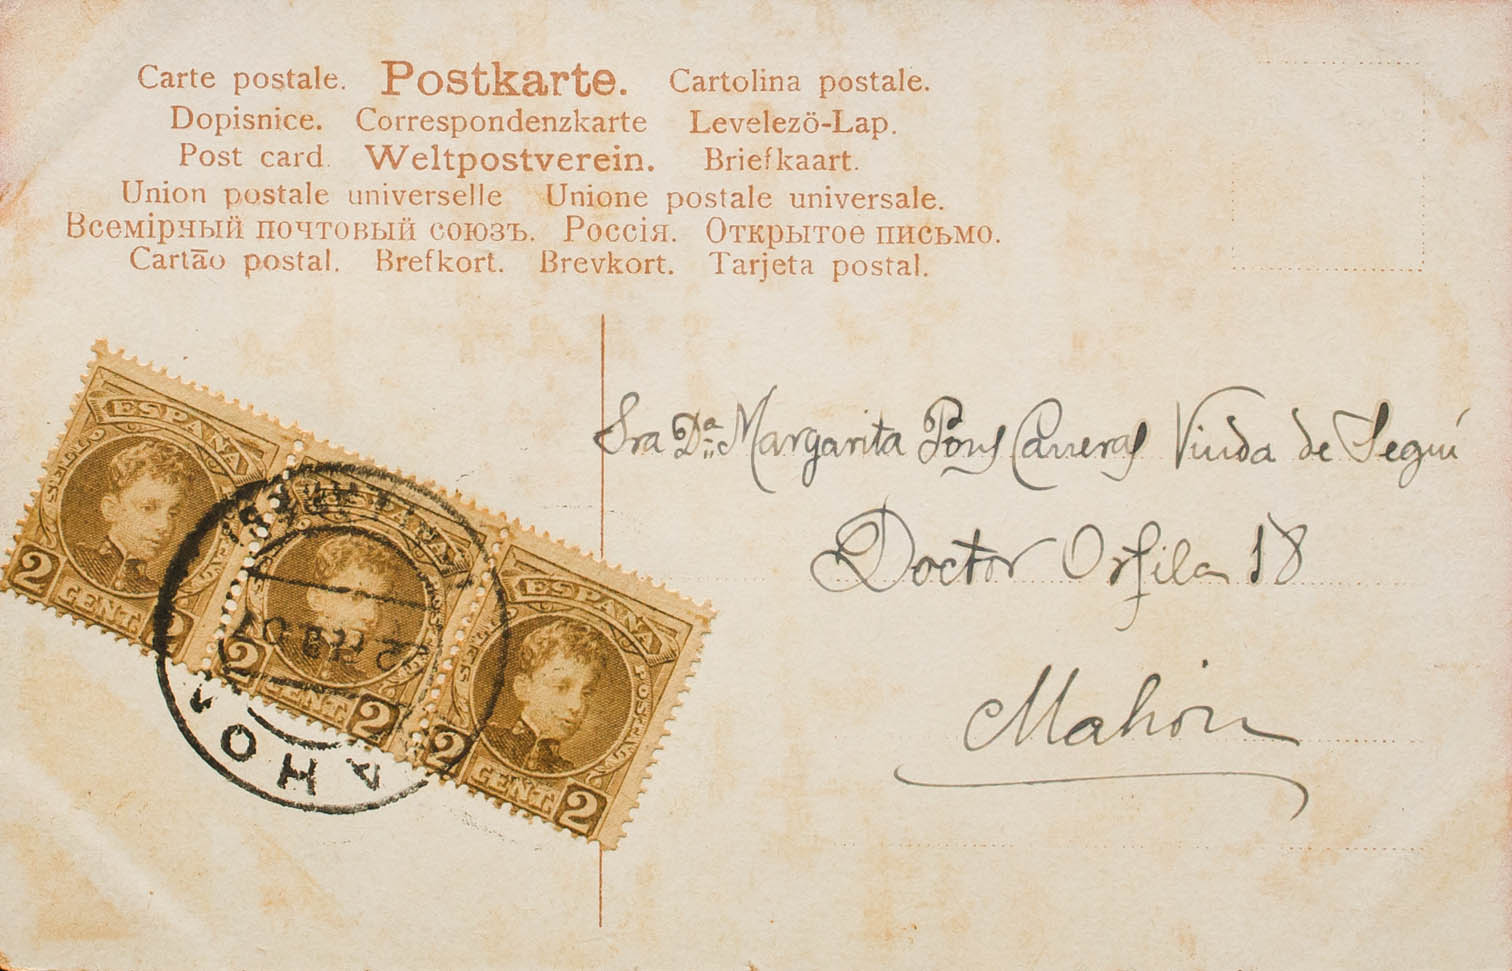 Carte postale. Postkarte. Cartolina postale.
Dopisnice. Correspondenzkarte Levelezö-Lap.
Post card. Weltpostverein. Briefkaart.
Union postale universelle Unione postale universale.
Всемірный почтовый союзъ. Россія. Открытое письмо.
Cartão postal. Brefkort. Brevkort. Tarjeta postal.
Sra Dª Margarita Pons Carreras Viuda de Seguí
Doctor Orfila 18
Mahón
ESPAÑA
2 CENT. 2
ESPAÑA
2 CENT. 2
ESPAÑA
2 CENT. 2
MAHON